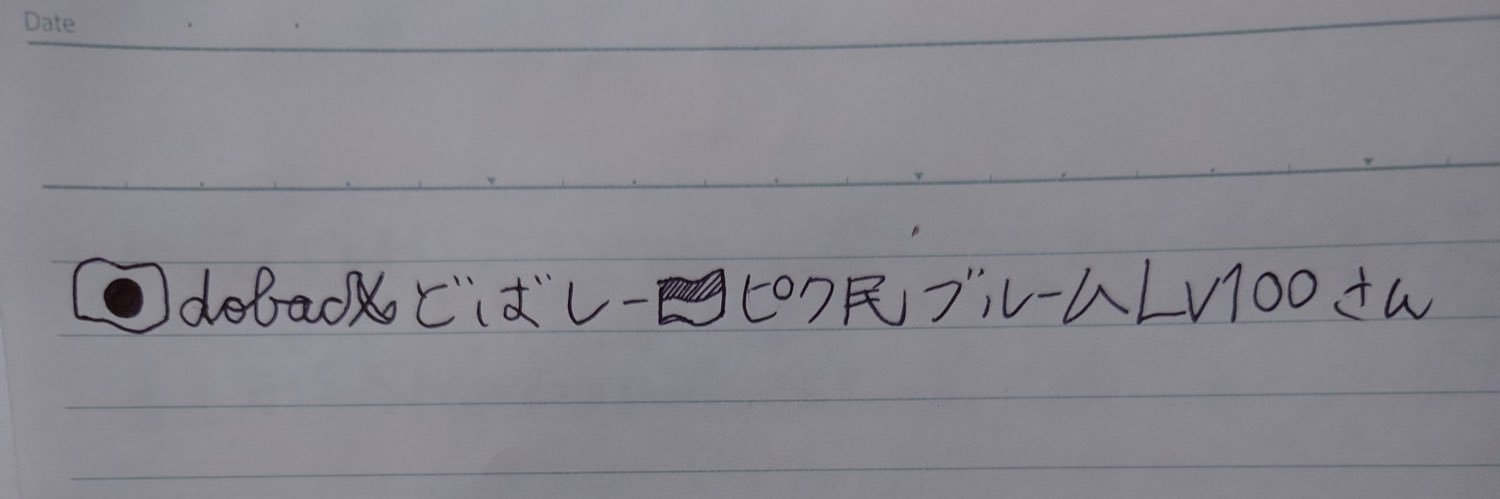 Date
🇯🇵dobadyどばしー🇮🇩ピク民ブルームLv100さん